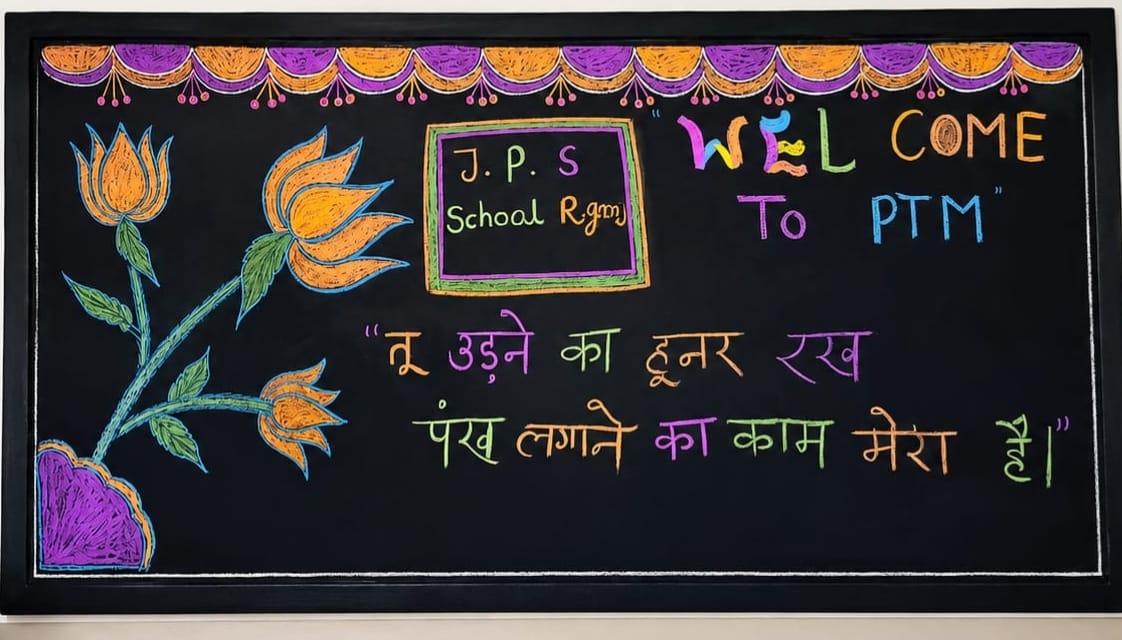 J. P. S
School R.gmj
"WEL COME
To PTM"
"तू उड़ने का हूनर रख
पंख लगाने का काम मेरा है।"